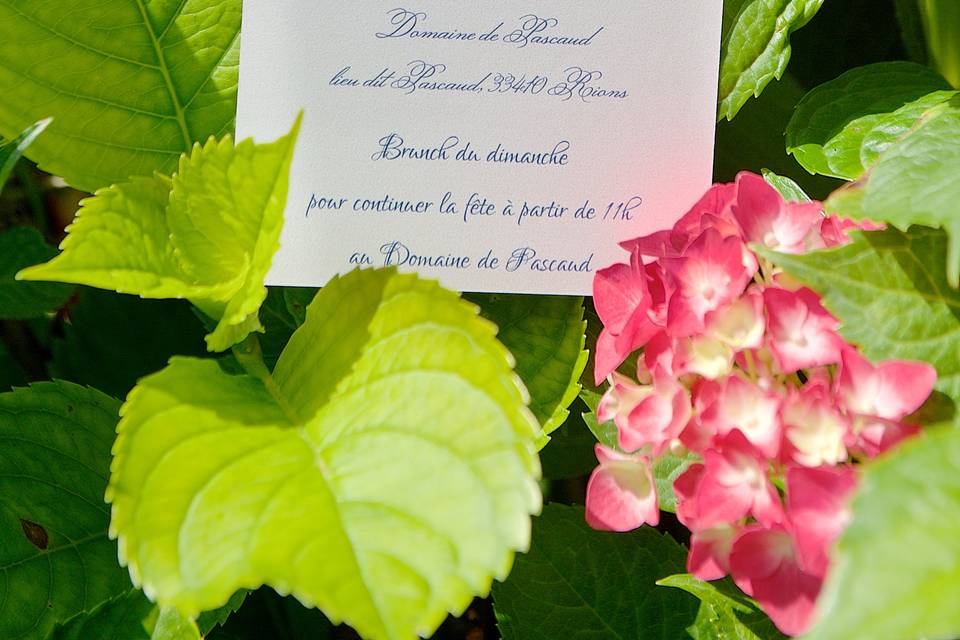 Domaine de Pascaud
lieu dit Pascaud, 33410 Rions
Brunch du dimanche
pour continuer la fête à partir de 11h
au Domaine de Pascaud